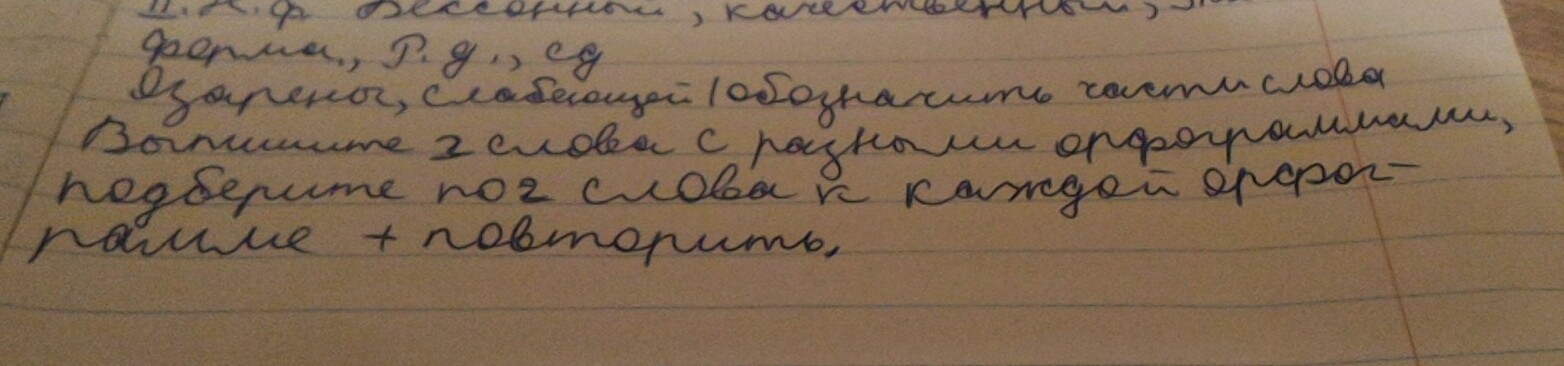 II. Н.ф Бессонный, качественный,
форма, Р.д., сд
Озарены, слабеющей / обозначить части слова
Выпишите 2 слова с разными орфограммами,
подберите по 2 слова к каждой орфог-
рамме + повторить.